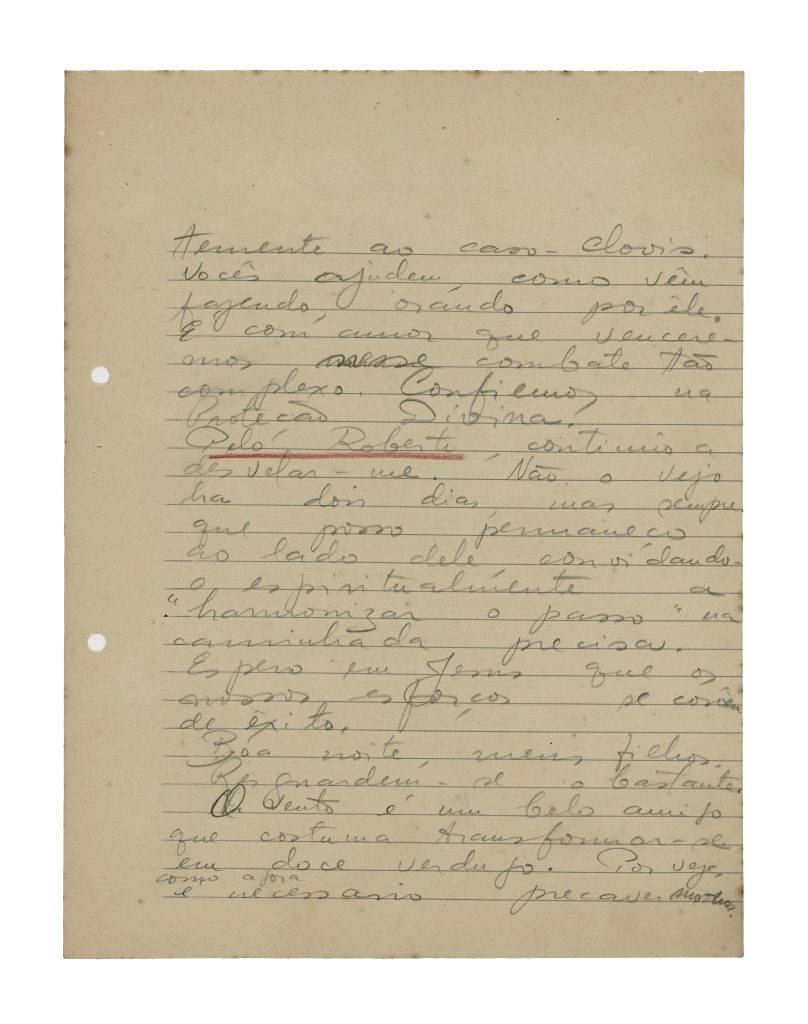 temente ao caso-Clovis.
Vocês ajudem, como vêm
fazendo, orando por êle.
E com amor que vencere-
mos nesse combate tão
complexo. Confiemos na
Proteção Divina!
Pelo Roberto, continúo a
desvelar-me. Não o vejo
ha dois dias, mas sempre
que posso permaneço
ao lado dele convidando-
o espiritualmente a
"harmonizar o passo" na
caminhada precisa.
Espero em Jesus que os
nossos esforços se corôem
de êxito.
Bôa noite, meus filhos.
Resguardem-se o bastante.
O Vento é um belo amigo
que costuma transformar-se
em doce verdugo. Por veze,
como agora
é necessario precavermo-nos.